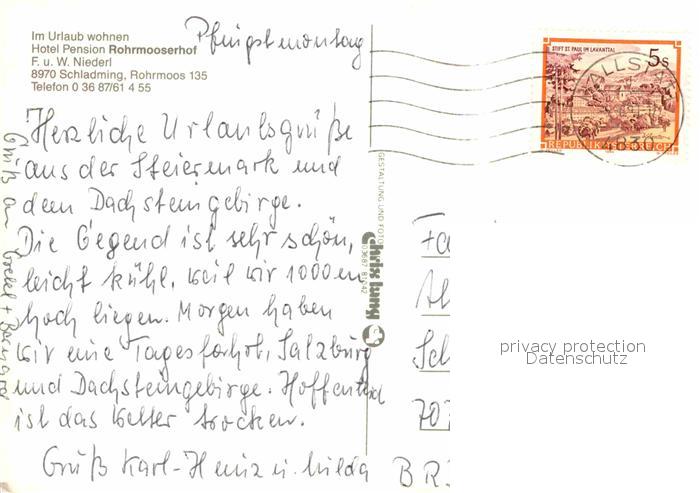 Im Urlaub wohnen
Hotel Pension Rohrmooserhof
F. u. W. Niederl
8970 Schladming, Rohrmoos 135
Telefon 0 36 87/61 4 55
Pfingstmontag
Herzliche Urlaubsgrüße
aus der Steiermark und
dem Dachsteingebirge.
Die Gegend ist sehr schön,
leicht kühl, weil wir 1000 m
hoch liegen. Morgen haben
wir eine Tagesfahrt, Salzburg
und Dachsteingebirge. Hoffentlich
ist das Wetter trocken.
Gruß Karl-Heinz u. Hilda
Gruß an
GESTALTUNG UND FOTO
STIFT ST. PAUL IM LAVANTTAL
5 S
REPUBLIK ÖSTERREICH
HALLSTATT
4830
Fa
Sch
707
BR
privacy protection
Datenschutz